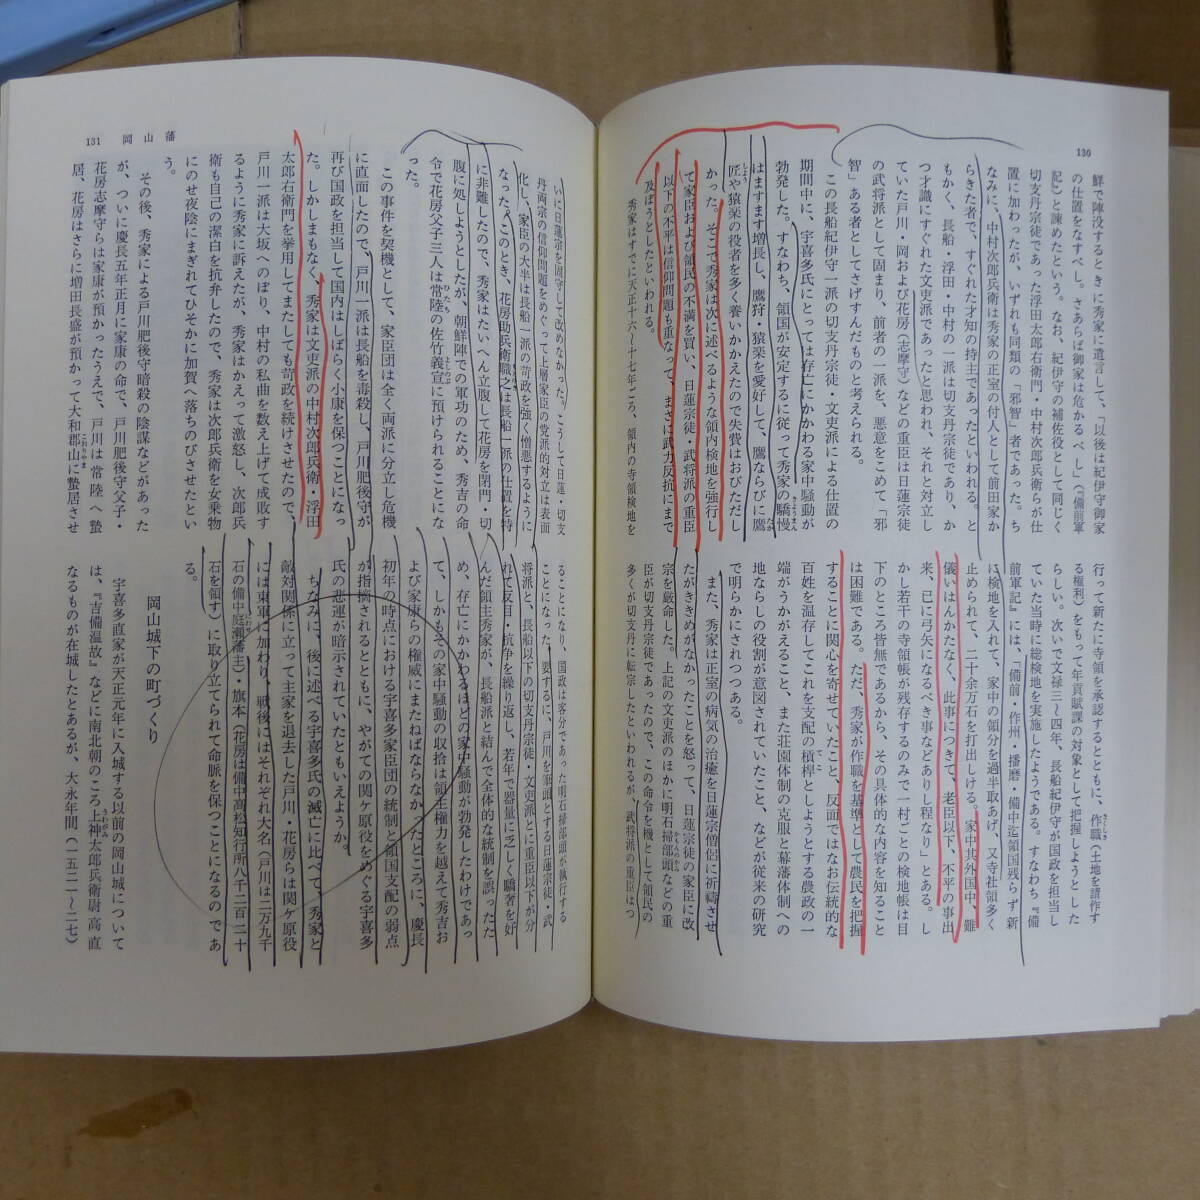 130
鮮で陣没するときに秀家に遺言して、「以後は紀伊守御家
の仕置をなすべし。さあらば御家は危かるべし」(『備前軍
記』)と諫めたという。なお、紀伊守の補佐役として同じく
切支丹宗徒であった浮田太郎右衛門・中村次郎兵衛らが仕
置に加わったが、いずれも同類の「邪智」者であった。ち
なみに、中村次郎兵衛は秀家の正室の付人として前田家か
らきた者で、すぐれた才知の持主であったといわれる。と
もかく、長船・浮田・中村の一派は切支丹宗徒であり、か
つ才識にすぐれた文吏派であったと思われ、それと対立し
ていた戸川・岡および花房(志摩守)などの重臣は日蓮宗徒
の武将派として固まり、前者の一派を、悪意をこめて「邪
智」ある者としてさげすんだものと考えられる。
この長船紀伊守一派の切支丹宗徒・文吏派による仕置の
期間中に、宇喜多氏にとっては存亡にかかわる家中騒動が
勃発した。すなわち、領国が安定するに従って秀家の驕慢
はますます増長し、鷹狩・猿楽を愛好して、鷹ならびに鷹
匠や猿楽の役者を多く養いかかえたので失費はおびただし
かった。そこで秀家は次に述べるような領内検地を強行し
て家臣および領民の不満を買い、日蓮宗徒・武将派の重臣
以下の不平は信仰問題も重なって、まさに武力反抗にまで
及ぼうとしたといわれる。
秀家はすでに天正十六〜十七年ごろ、領内の寺領検地を
行って新たに寺領を承認するとともに、作職(土地を請作す
る権利)をもって年貢賦課の対象として把握しようとした
らしい。次いで文禄三〜四年、長船紀伊守が国政を担当し
ていた当時に総検地を実施したようである。すなわち『備
前軍記』には、「備前・作州・播磨・備中迄領国残らず新
に検地を入れて、家中の領分を過半取あげ、又寺社領多く
止められて、二十余万石を打出しける。家中其外国中、難
儀いはんかたなく、此事につきて、老臣以下、不平の事出
来、已に弓矢になるべき事などありし程なり」とある。し
かし若干の寺領帳が残存するのみで一村ごとの検地帳は目
下のところ皆無であるから、その具体的な内容を知ること
は困難である。ただ、秀家が作職を基準として農民を把握
することに関心を寄せていたこと、反面ではなお伝統的な
百姓を温存してこれを支配の槓桿としようとする農政の一
端がうかがえること、また荘園体制の克服と幕藩体制への
地ならしの役割が意図されていたこと、などが従来の研究
で明らかにされつつある。
また、秀家は正室の病気の治癒を日蓮宗僧侶に祈禱させ
たがききめがなかったことを怒って、日蓮宗徒の家臣に改
宗を厳命した。上記の文吏派のほかに明石掃部頭などの重
臣が切支丹宗徒であったので、この命令を機として領民の
多くが切支丹に転宗したといわれるが、武将派の重臣はつ
131 岡山藩
いに日蓮宗を固守して改めなかった。こうして日蓮・切支
丹両宗の信仰問題をめぐって上層家臣の党派的対立は表面
化し、家臣の大半は長船一派の苛政を強く憎悪するように
なった。このとき、花房助兵衛職之は長船一派の仕置を特
に非難したので、秀家はたいへん立腹して花房を閉門・切
腹に処しようとしたが、朝鮮陣での軍功のため、秀吉の命
令で花房父子三人は常陸の佐竹義宣に預けられることにな
った。
この事件を契機として、家臣団は全く両派に分立し危機
に直面したので、戸川一派は長船を毒殺し、戸川肥後守が
再び国政を担当して国内はしばらく小康を保つことになっ
た。しかしまもなく、秀家は文吏派の中村次郎兵衛・浮田
太郎右衛門を挙用してまたしても苛政を続けさせたので、
戸川一派は大坂へのぼり、中村の私曲を数え上げて成敗す
るように秀家に訴えたが、秀家はかえって激怒し、次郎兵
衛も自己の潔白を抗弁したので、秀家は次郎兵衛を女乗物
にのせ夜陰にまぎれてひそかに加賀へ落ちのびさせたとい
う。
その後、秀家による戸川肥後守暗殺の陰謀などがあった
が、ついに慶長五年正月に家康の命で、戸川肥後守父子・
花房志摩守らは家康が預かったうえで、戸川は常陸へ蟄
居、花房はさらに増田長盛が預かって大和郡山に蟄居させ
ることになり、国政は客分であった明石掃部頭が執行する
ことになった。要するに、戸川を筆頭とする日蓮宗徒・武
将派と、長船以下の切支丹宗徒・文吏派とに重臣以下が分
れて反目・抗争を繰り返し、若年で器量に乏しく驕奢を好
んだ領主秀家が、長船派と結んで全体的な統制を誤ったた
め、存亡にかかわるほどの家中騒動が勃発したわけであっ
て、しかもその家中騒動の収拾は領主権力を越えて秀吉お
よび家康らの権威にまたねばならなかったところに、慶長
初年の時点における宇喜多家臣団の統制と領国支配の弱点
が指摘されるとともに、やがての関ケ原役をめぐる宇喜多
氏の悲運が暗示されていたともいえようか。
ちなみに、後に述べる宇喜多氏の滅亡に比べて、秀家と
敵対関係に立って主家を退去した戸川・花房らは関ケ原役
には東軍に加わり、戦後にはそれぞれ大名(戸川は二万九千
石の備中庭瀬藩主)・旗本(花房は備中高松知行所八千二百二十
石を領す)に取り立てられて命脈を保つことになるのであ
る。
岡山城下の町づくり
宇喜多直家が天正元年に入城する以前の岡山城について
は、『吉備温故』などに南北朝のころ上神太郎兵衛尉高直
なるものが在城したとあるが、大永年間(一五二一〜二七)